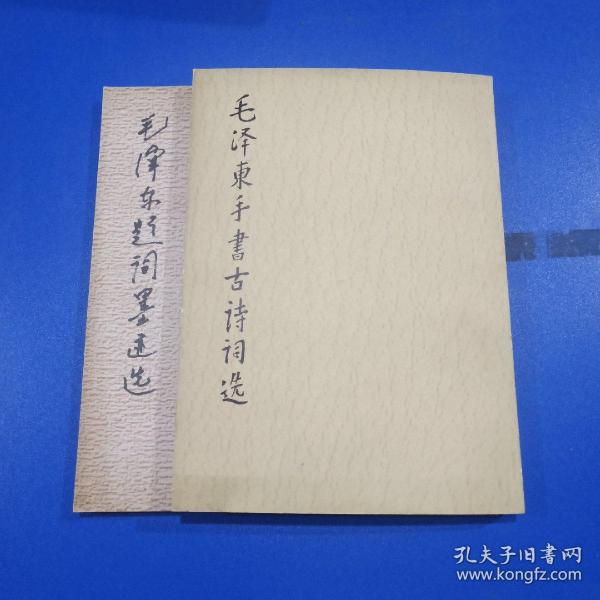 毛泽東手書古诗词选
毛泽东题词墨迹选
孔夫子旧書网
www.kongfz.com